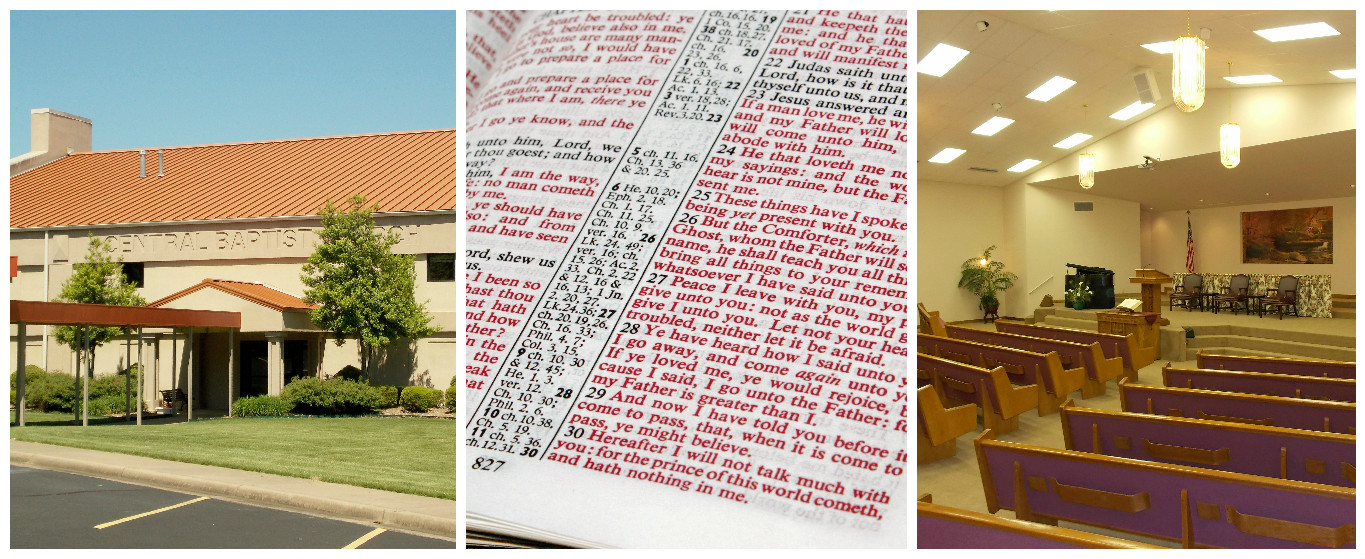 CENTRAL BAPTIST
heart be troubled: ye
God, believe also in me.
house are many man-
not so, I would have
go to prepare a place for
and prepare a place for
again, and receive you
that where I am, there ye
I go ye know, and the
unto him, Lord, we
thou goest; and how
way?
him, I am the way,
no man cometh
by me.
ye should have
so: and from
and have seen
shew us
us.
I been so
hast thou
that hath
and how
the
that
ch. 16. 16. 19
1 Co. 15. 20.
38 ch. 18. 27.
ch. 21. 17,
ch. 16. 20
23, 26.
1 ch. 16. 6,
22, 33.
Lk. 6. 16; 22
Ac. 1. 13.
3 ver. 18, 28;
Ac. 1. 11,
Rev. 3. 20. 23
5 ch. 11. 16.
Ch. 13. 36
& 20. 25.
6 He. 10. 20;
Eph. 2. 18.
Ch. 1. 17;
Ch. 11. 25.
ch. 10. 9.
ver. 16. 26
Lk. 24. 49;
ver. 16; ch.
15. 26; Ac. 2.
33. Ch. 2. 22
& 12. 16 &
16. 13; 1 Jn.
2. 20, 27.
24. 36; 27
ch. 20. 19, 26.
Ch. 16. 33;
Phil. 4. 7;
Col. 3. 15.
9 ch. 10. 30
& 12. 45;
He. 1. 3.
ver. 12. 28
Ch. 10. 30;
Phil. 2. 6.
10 ch. 10. 38,
Ch. 5. 19.
11 ch. 5. 36.
ch. 12. 31. 30
827
21 He that hat
and keepeth the
me: and he tha
loved of my Fathe
and will manifest
22 Judas saith unt
Lord, how is it that
thyself unto us, and n
23 Jesus answered an
If a man love me, he wi
and my Father will lo
will come unto him,
abode with him.
24 He that loveth me no
my sayings: and the wo
hear is not mine, but the Fa
sent me.
25 These things have I spoke
being yet present with you.
26 But the Comforter, which
Ghost, whom the Father will se
name, he shall teach you all th
bring all things to your remem
whatsoever I have said unto you
27 Peace I leave with you, my p
give unto you: not as the world g
give I unto you. Let not your hea
troubled, neither let it be afraid.
28 Ye have heard how I said unto y
I go away, and come again unto y
If ye loved me, ye would rejoice, b
cause I said, I go unto the Father: fo
my Father is greater than I.
29 And now I have told you before it
come to pass, that, when it is come to
pass, ye might believe.
30 Hereafter I will not talk much with
you: for the prince of this world cometh,
and hath nothing in me.